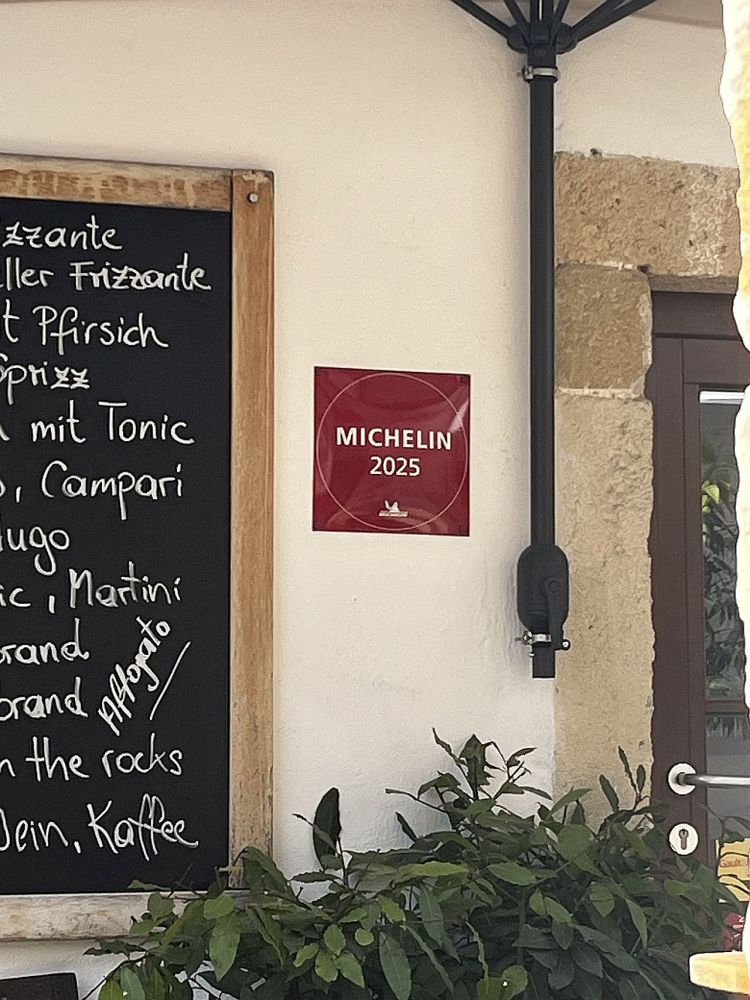 zzante
ller Frizzante
t Pfirsich
Sprizz
mit Tonic
, Campari
Hugo
ic, Martini
brand
brand Affogato
n the rocks
Wein, Kaffee
MICHELIN
2025
Gault